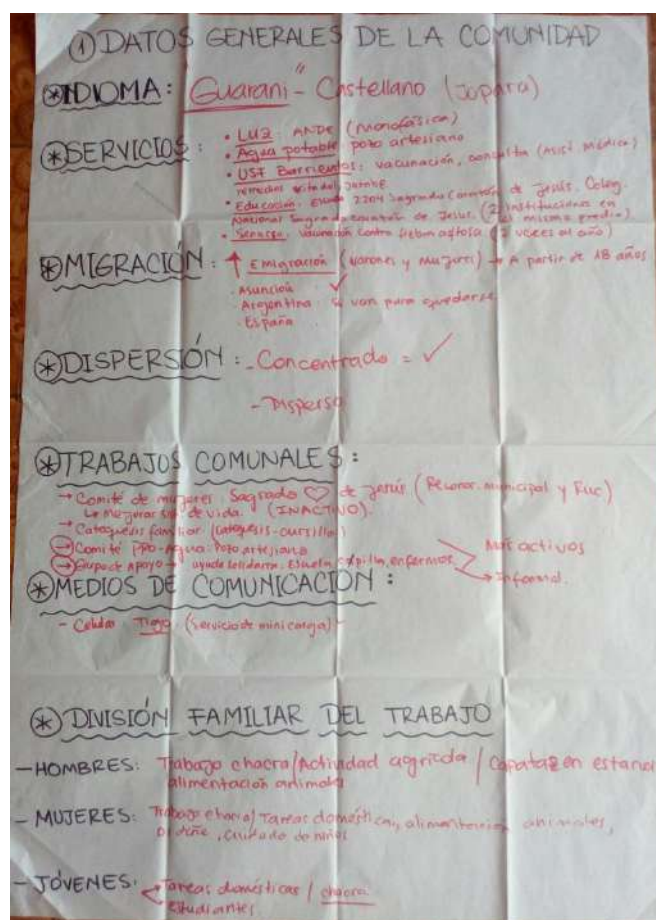 ① DATOS GENERALES DE LA COMUNIDAD
* IDIOMA: "Guaraní" - Castellano (Jopara)
* SERVICIOS: • LUZ: ANDE (monofásica)
• Agua potable: pozo artesiano
• USF Barrientos: vacunación, consulta (Asist. Médica)
remedios
• Educación: Escuela Sagrado Corazón de Jesús. Coleg.
Nacional Sagrado Corazón de Jesús. (2 instituciones en
el mismo predio)
• Senacsa: vacunación contra fiebre aftosa (2 veces al año)
* MIGRACIÓN: ↑ Emigración (varones y mujeres) → A partir de 18 años
- Asunción ✓
- Argentina Se van para quedarse
- España
* DISPERSIÓN: - Concentrado = ✓
- Disperso
* TRABAJOS COMUNALES:
→ Comité de mujeres Sagrado ♡ de Jesús (Reconoc. Municipal y Ruc)
Mejorar de vida. (INACTIVO).
→ Catequesis familiar (catequesis - cursillo)
→ Comité Agua: Pozo artesiano Más activos
→ Grupo de apoyo → ayuda solidaria. Escuela, capilla, enfermos. → Informal.
* MEDIOS DE COMUNICACIÓN:
- Celular Tigo (Servicio de mini carga) -
* DIVISIÓN FAMILIAR DEL TRABAJO
- HOMBRES: Trabajo chacra / Actividad agrícola / Capataz en estancia
alimentación animales
- MUJERES: Trabajo chacra / Tareas domésticas, alimentación animales,
ordeñe, cuidado de niños
- JÓVENES: → Tareas domésticas / chacra
estudiantes